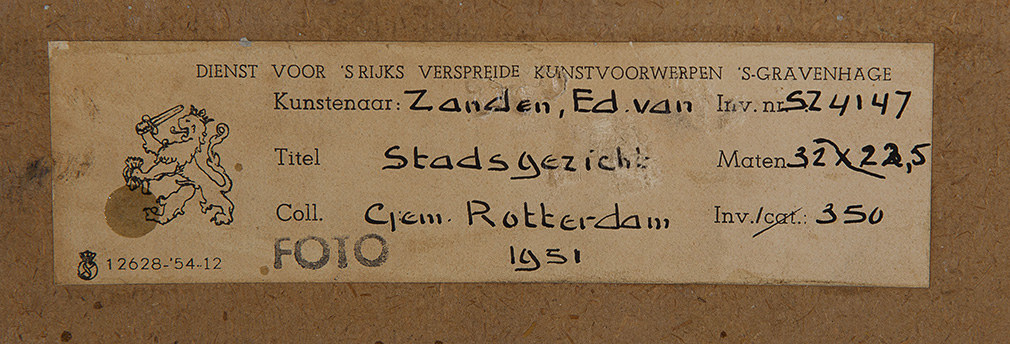 DIENST VOOR 'S RIJKS VERSPREIDE KUNSTVOORWERPEN 'S-GRAVENHAGE
Kunstenaar: Zanden, Ed. van Inv. nr. SZ4147
Titel Stadsgezicht Maten 32 X 22,5
Coll. Gem. Rotterdam Inv./cat.: 350
FOTO 1951
12628-'54-12